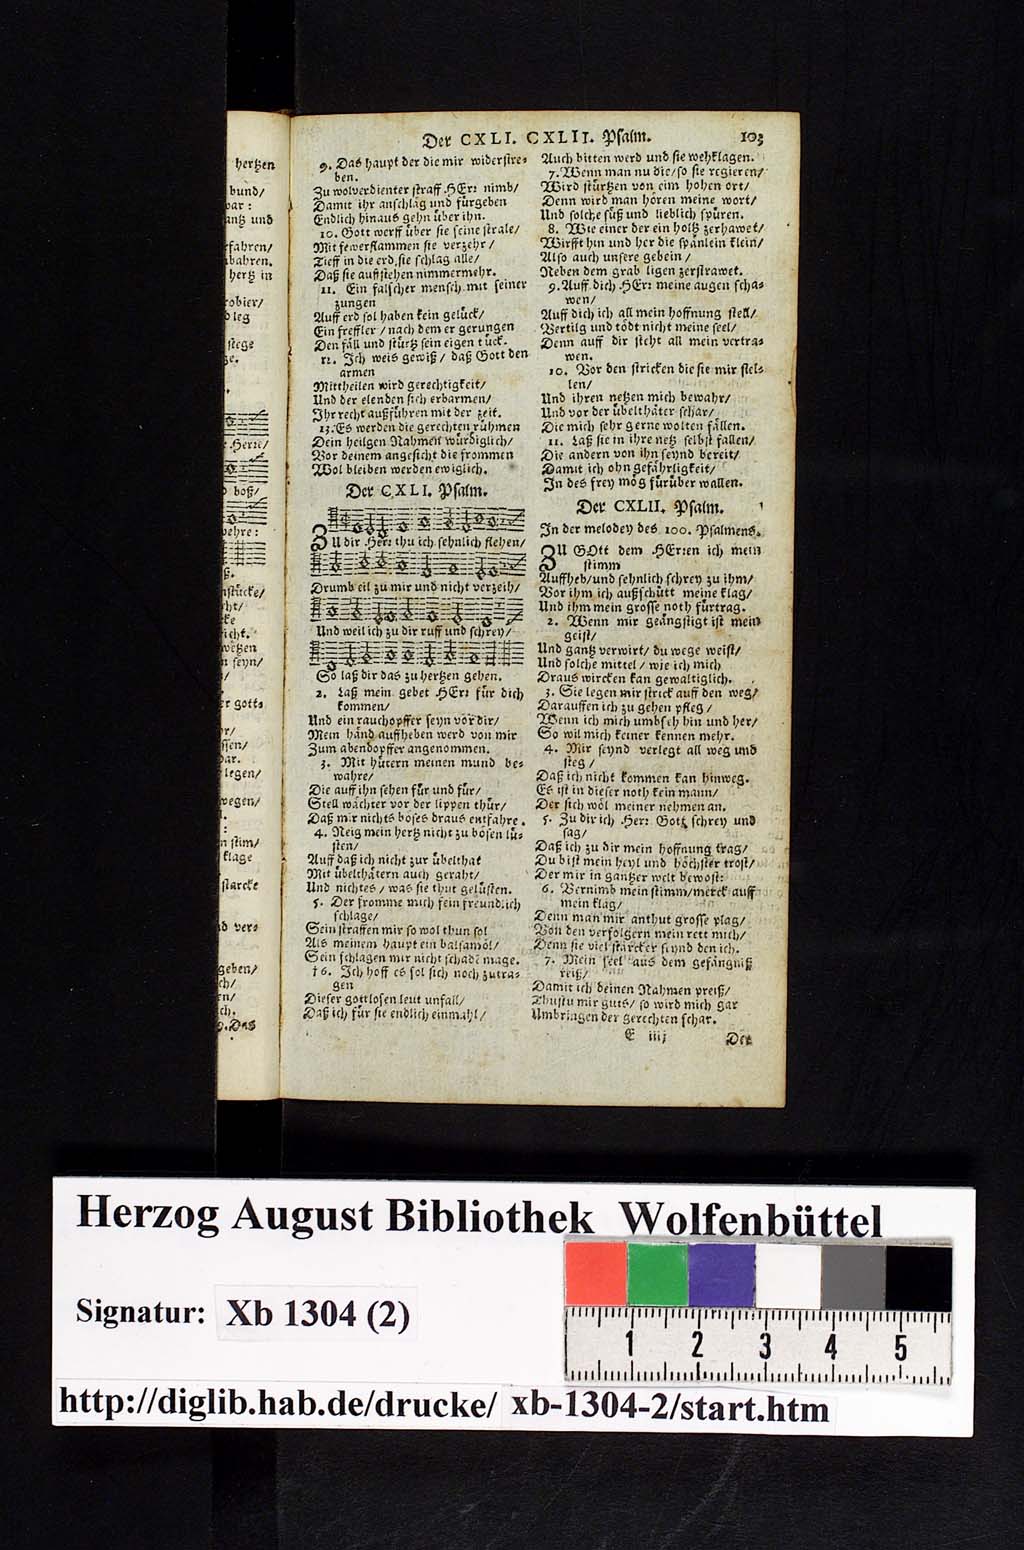 Der CXLI. CXLII. Psalm. 103
9. Das haupt der die mir widerstre-
ben.
Zu wolverdienter straff HErr nimb/
Damit ihr anschlag und fürgeben
Endlich hinaus gehn über ihn.
10. Gott werff über sie seine strale/
Mit fewerflammen sie verzehr/
Tieff in die erd sie schlag alle/
Daß sie auffstehen nimmermehr.
11. Ein falscher mensch mit seiner
zungen
Auff erd sol haben kein gelück/
Ein freffler/ nach dem er gerungen
Den fäll und stürtz sein eigen tück.
12. Ich weis gewiß/ daß Gott den
armen
Mittheilen wird gerechtigkeit/
Und der elenden sich erbarmen/
Ihr recht außführen mit der zeit.
13. Es werden die gerechten rühmen
Dein heilgen Nahmen würdiglich/
Vor deinem angesicht die frommen
Wol bleiben werden ewiglich.
Der CXLI. Psalm.
ZU dir Herr thu ich sehnlich flehen/
Drumb eil zu mir und nicht verzeih/
Und weil ich zu dir ruff und schrey/
So laß dir das zu hertzen gehen.
2. Laß mein gebet HErr für dich
kommen/
Und ein rauchopffer seyn vor dir/
Mein händ auffheben werd von mir
Zum abendopffer angenommen.
3. Mit hütern meinen mund be-
wahre/
Die auff ihn sehen für und für/
Stell wächter vor der lippen thür/
Daß mir nichts böses draus entfahre.
4. Neig mein hertz nicht zu bösen lü-
sten/
Auff daß ich nicht zur übelthat
Mit übelthätern auch geraht/
Und nichtes/ was sie thut gelüsten.
5. Der fromme mich fein freundlich
schlage/
Sein straffen mir so wol thun sol
Als meinem haupt ein balsamöl/
Sein schlagen mir nicht schade mage.
†6. Ich hoff es sol sich noch zutra-
gen
Dieser gottlosen leut unfall/
Daß ich für sie endlich einmahl/
Auch bitten werd und sie wehklagen.
7. Wenn man nu die/ so sie regieren/
Wird stürtzen von eim hohen ort/
Denn wird man hören meine wort/
Und solche süß und lieblich spüren.
8. Wie einer der ein holtz zerhawet/
Wirfft hin und her die spänlein klein/
Also auch unsere gebein/
Neben dem grab ligen zerstrawet.
9. Auff dich HErr meine augen scha-
wen/
Auff dich ich all mein hoffnung stell/
Vertilg und tödt nicht meine seel/
Denn auff dir steht all mein vertra-
wen.
10. Vor den stricken die sie mir stel-
len/
Und ihren netzen mich bewahr/
Und vor der übelthäter schar/
Die mich sehr gerne wolten fällen.
11. Laß sie in ihre netz selbst fallen/
Die andern von ihn seynd bereit/
Damit ich ohn gefährligkeit/
In des frey mög fürüber wallen.
Der CXLII. Psalm.
In der melodey des 100. Psalmens.
ZU GOtt dem HErren ich mein
stimm
Auffheb/ und sehnlich schrey zu ihm/
Vor ihm ich außschütt meine klag/
Und ihm mein grosse noth fürtrag.
2. Wenn mir geängstigt ist mein
geist/
Und gantz verwirt/ du wege weist/
Und solche mittel/ wie ich mich
Draus wircken kan gewaltiglich.
3. Sie legen mir strick auff den weg/
Darauffen ich zu gehen pfleg/
Wenn ich mich umbseh hin und her/
So wil mich keiner kennen mehr.
4. Mir seynd verlegt all weg und
steg/
Daß ich nicht kommen kan hinweg.
Es ist in dieser noth kein mann/
Der sich wöl meiner nehmen an.
5. Zu dir ich Herr Gott schrey und
sag/
Daß ich zu dir mein hoffnung trag/
Du bist mein heyl und höchster trost/
Der mir in gantzer welt bewost:
6. Vernimb mein stimm/ merck auff
mein klag/
Denn man mir anthut grosse plag/
Von den verfolgern mein rett mich/
Denn sie viel stärcker seynd den ich.
7. Mein seel aus dem gefängniß
reiß/
Damit ich deinen Nahmen preiß/
Thustu mir guts/ so wird mich gar
Umbringen der gerechten schar.
E iiij Der
hertzen
bund/
antz und
hertz in
robier/
stege
Herre/
boß/
legen/
n stim/
klage
starcke
ver-
geben/
9. Das
Herzog August Bibliothek Wolfenbüttel
Signatur: Xb 1304 (2)
1 2 3 4 5
http://diglib.hab.de/drucke/ xb-1304-2/start.htm